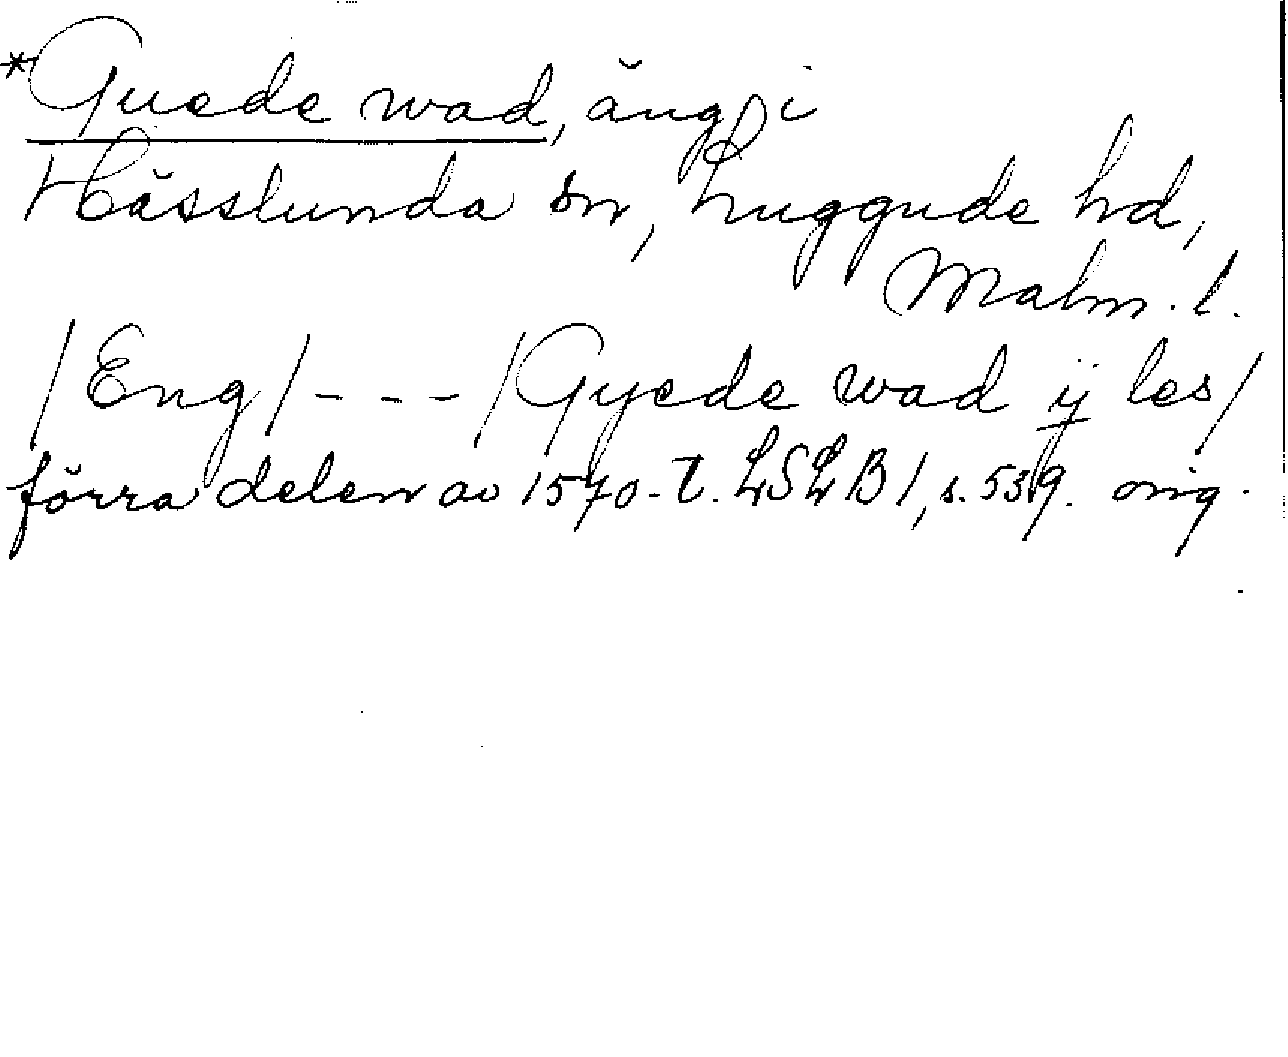 *Guede wad, äng, i
Hässlunda sn, Luggude hd,
Malm. l.
/Eng/ - - - /Gyede wad ij les/
förra delen av 1570-t. LSLB 1, s. 539. orig.